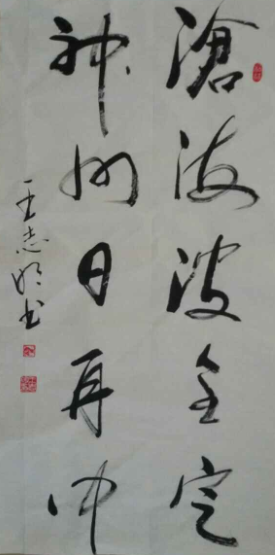 滄海波全定
神州日再中
王志明书